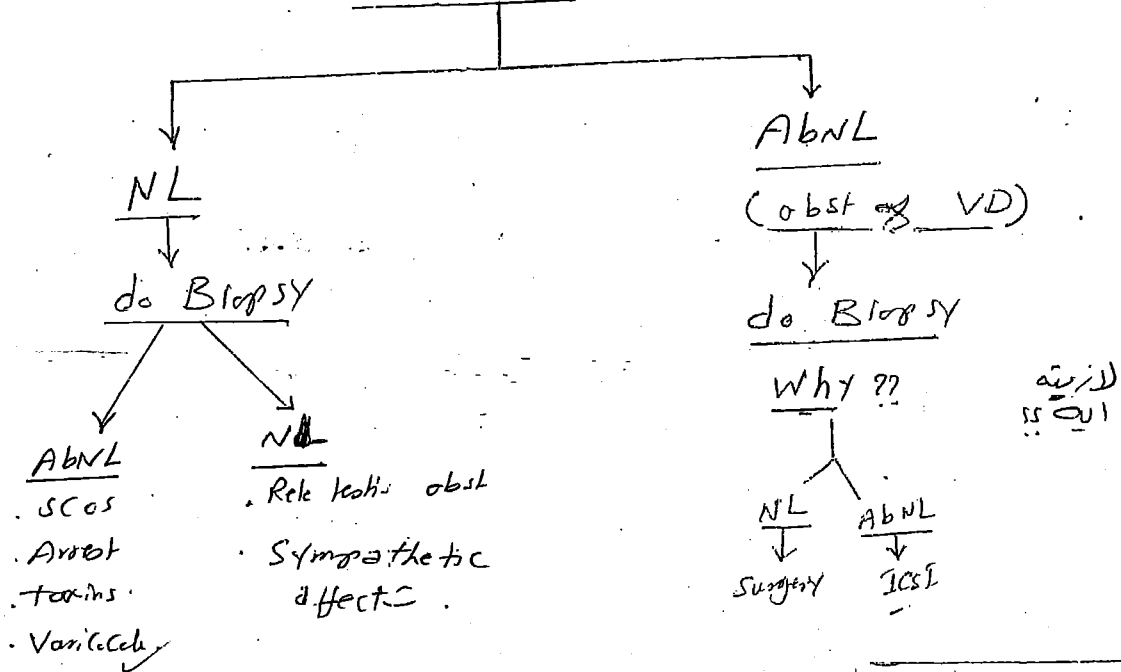 NL
do Biopsy
AbNL
. SCOS
. Arrest
. toxins.
. Varicocele
NL
. Rete testis obst
. Sympathetic
affect
AbNL
(obst of VD)
do Biopsy
Why ??
NL
Surgery
AbNL
ICSI
لازمته
ايه ؟؟